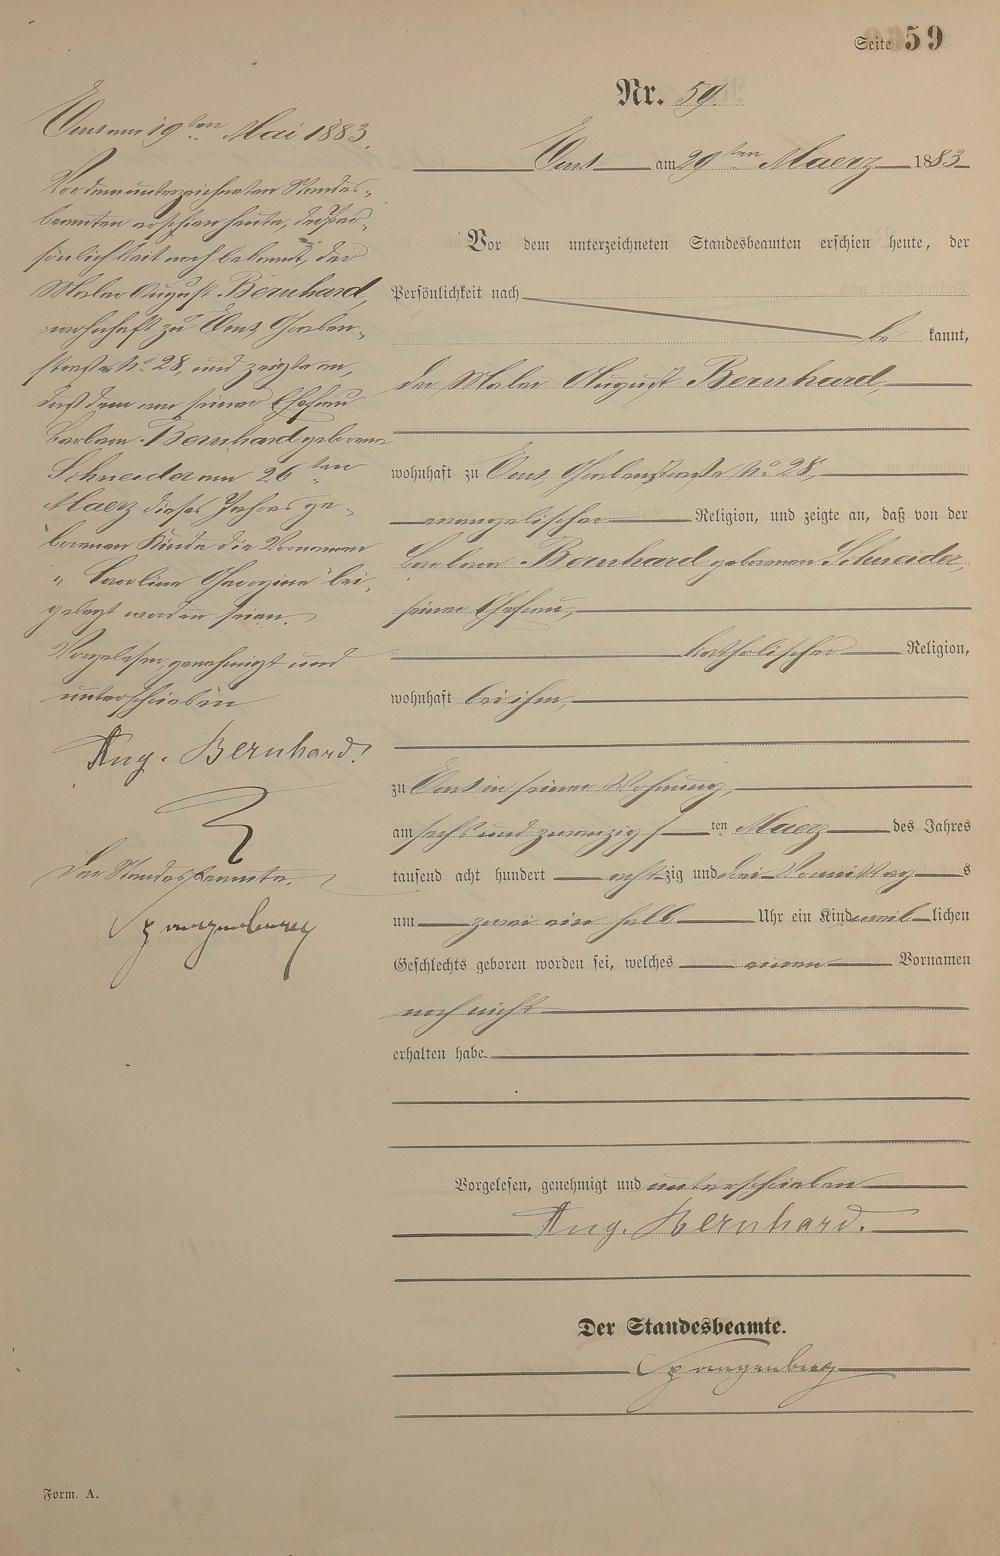 Seite 59
Nr. 59.
Ems am 29ten Maerz 1883
Vor dem unterzeichneten Standesbeamten erschien heute, der
Persönlichkeit nach
be kannt,
der Maler August Bernhard,
wohnhaft zu Ems, Grabenstraße No. 28,
evangelischer Religion, und zeigte an, daß von der
Barbara Bernhard geborenen Schneider,
seiner Ehefrau,
katholischer Religion,
wohnhaft bei ihm,
zu Ems in seiner Wohnung,
am sechs und zwanzigs ten Maerz des Jahres
tausend acht hundert acht zig und drei Vormittag s
um zwei ein halb Uhr ein Kind weib lichen
Geschlechts geboren worden sei, welches einen Vornamen
noch nicht
erhalten habe.
Vorgelesen, genehmigt und unterschrieben
Aug. Bernhard.
Der Standesbeamte.
Spangenberg
Ems am 19ten Mai 1883.
Vor dem unterzeichneten Standes-
beamten erschien heute, der Per-
sönlichkeit nach bekannt, der
Maler August Bernhard,
wohnhaft zu Ems, Graben-
straße No. 28, und zeigte an,
daß dem von seiner Ehefrau
Barbara Bernhard geborene
Schneider am 26ten
Maerz dieses Jahres ge-
borenen Kinde die Vornamen
"Caroline Hermine" bei-
gelegt worden seien.
Vorgelesen, genehmigt und
unterschrieben
Aug. Bernhard.
Der Standesbeamte.
Spangenberg
Form. A.